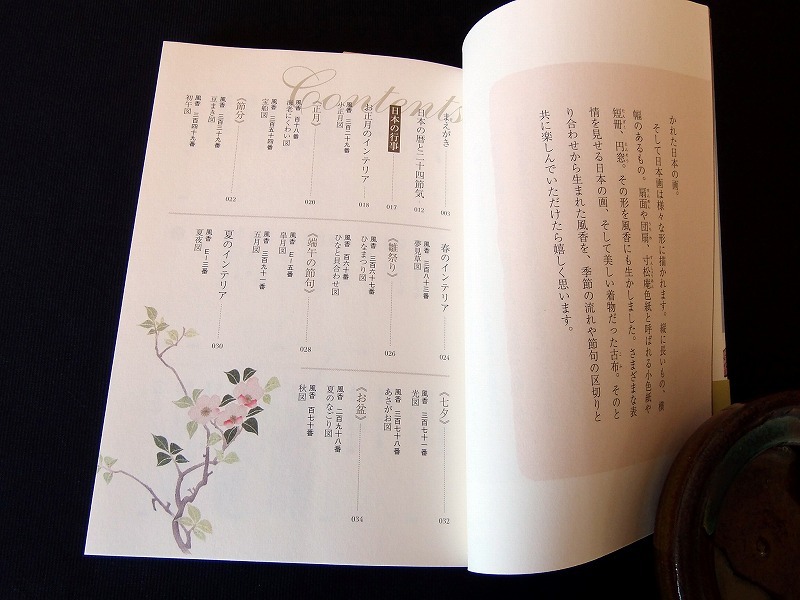 かれた日本の画。
そして日本画は様々な形に描かれます。縦に長いもの、横
幅のあるもの。扇面や団扇、寸松庵色紙と呼ばれる小色紙や
短冊、円窓。その形を風香にも生かしました。さまざまな表
情を見せる日本の画、そして美しい着物だった古布。そのと
り合わせから生まれた風香を、季節の流れや節句の区切りと
共に楽しんでいただけたら嬉しく思います。
Contents
まえがき 003
日本の暦と二十四節気 012
日本の行事 017
お正月のインテリア 018
風香 三百二十九番
小正月図
《正月》 020
風香 百十八番
海老にくわい図
風香 三百五十四番
宝船図
《節分》 022
風香 三百三十九番
豆まき図
風香 三百四十九番
初午図
春のインテリア 024
風香 三百八十三番
夢見草図
《雛祭り》 026
風香 三百六十七番
ひなまつり図
風香 百六十番
ひなと貝合わせ図
《端午の節句》 028
風香 E－五番
皐月図
風香 三百九十一番
五月図
夏のインテリア 030
風香 E－三番
夏夜図
《七夕》 032
風香 三百七十一番
光図
風香 三百七十八番
あさがお図
《お盆》 034
風香 二百九十八番
夏のなごり図
風香 百七十番
秋図